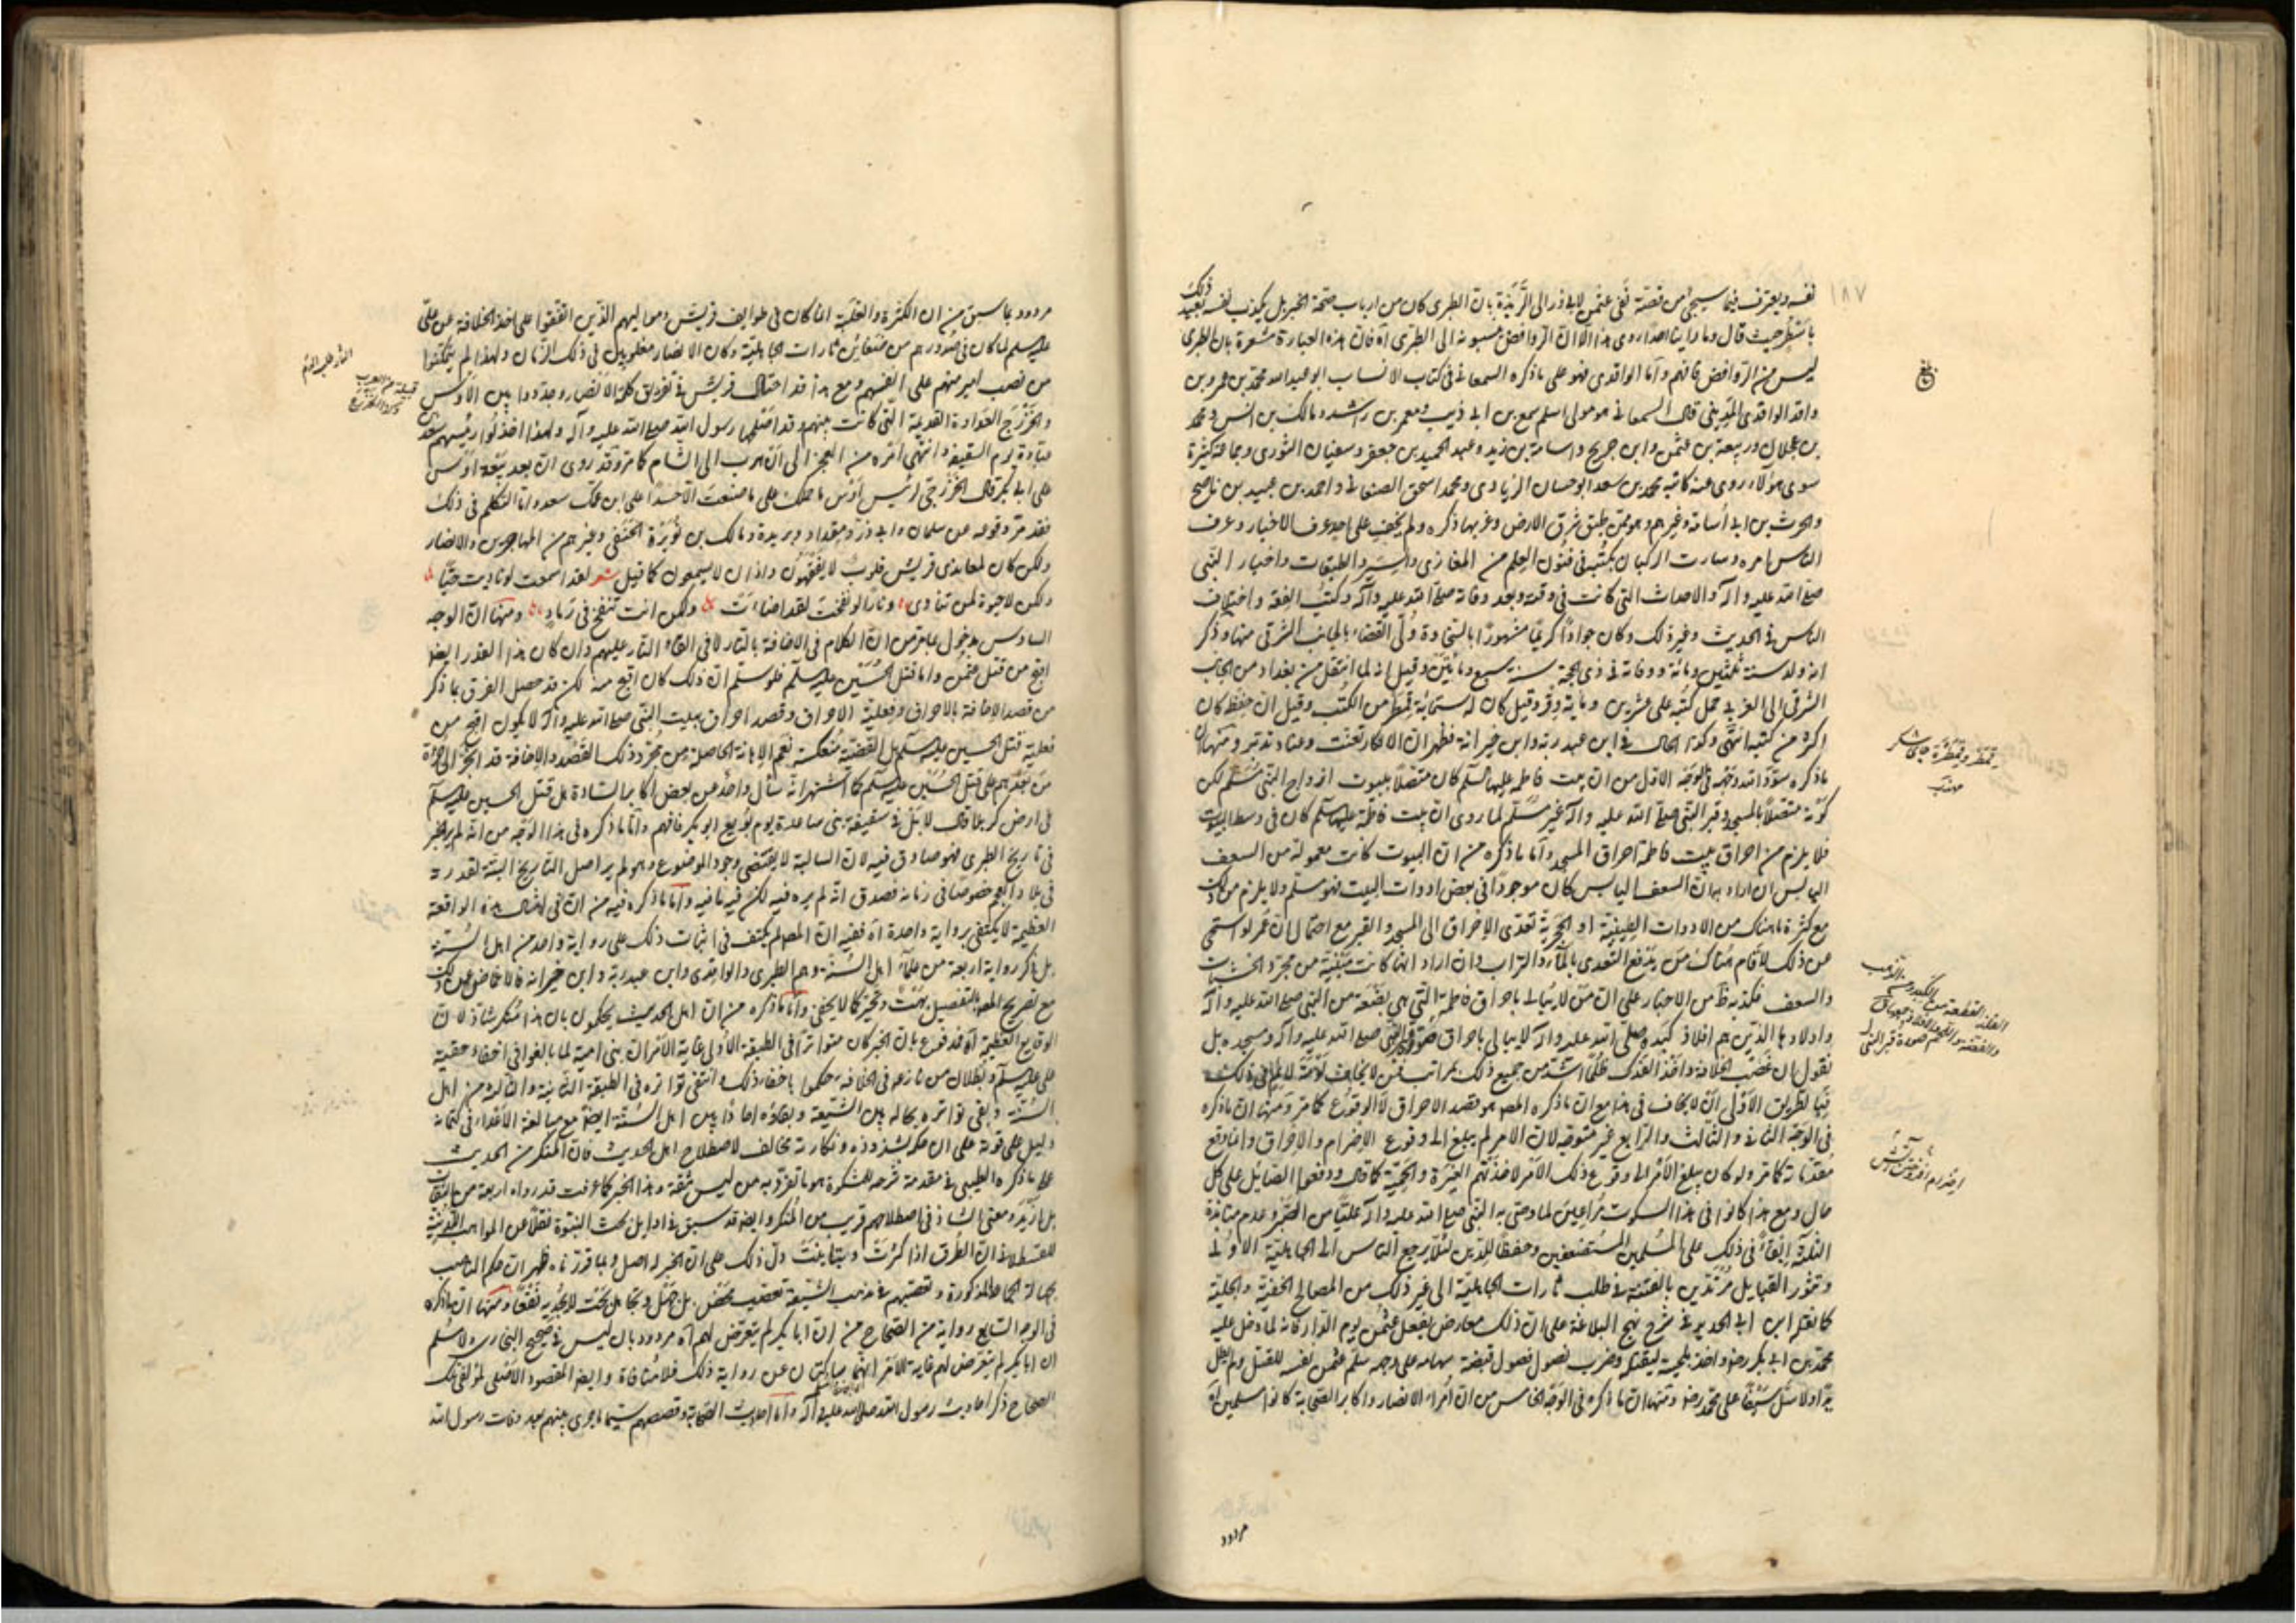 ١٨٧
نفسه ويعترف فيما سيجئ من قصة نفى عثمن لابى ذر الى الربذة بان الطبرى كان من ارباب صحة الخبر بل يكذب نفسه بعيد ذلك
باسطر حيث قال وما راينا احدا روى هذا الا ان الروافض نسبونه الى الطبرى آه فان هذه العبارة مشعرة بان الطبرى
ليس من الروافض فافهم واما الواقدى فهو على ما ذكره السمعانى فى كتاب الانساب ابو عبد الله محمد بن عمرو بن
واقد الواقدى المدينى قال السمعانى هو مولى اسلم سمع بن ابى ذيب ومعمر بن راشد ومالك بن انس ومحمد
بن عجلان وربيعة بن عثمن وابن جريج واسامة بن زيد وعبد الحميد بن جعفر وسفيان الثورى وجماعة كثيرة
سوى هؤلاء روى عنه كاتبه محمد بن سعد ابو حسان الزيادى ومحمد اسحق الصنعانى واحمد بن عبيد بن ناصح
والحرث بن ابى اسامة وغيرهم وهو ممن طبق شرق الارض وغربها ذكره ولم يخف على احد عرف الاخبار وعرف
الناس امره وسارت الركبان بكتبه فى فنون العلم من المغازى والسير والطبقات واخبار النبى
صلى الله عليه وآله والاحداث التى كانت فى وقته وبعد وفاته صلى الله عليه وآله وكتب الفقه واختلاف
الناس فى الحديث وغير ذلك وكان جوادا كريما مشهورا بالسخاوة ولى القضاء بالجانب الشرقى منها وذكر
انه ولد سنة ثلثين ومائة ووفاته فى ذى الحجة سنة سبع ومائتين وقيل انه لما انتقل من بغداد من الجانب
الشرقى الى الغربى حمل كتبه على عشرين ومائة وقر وقيل كان له ستمائة قمطر من الكتب وقيل ان حفظه كان
اكثر من كتبه انتهى وكذا الحال فى ابن عبد ربه وابن خيرانة فظهر ان الانكار تعنت وعناد تدبر ومنها ان
ما ذكره سود الله وجهه فى الوجه الاول من ان بيت فاطمة عليها السلم كان متصلا ببيوت ازواج النبى مسلم لكن
كونه متصلا بالمسجد وقبر النبى صلى الله عليه وآله غير مسلم لما روى ان بيت فاطمة عليها السلم كان فى وسط البيوت
فلا يلزم من احراق بيت فاطمة احراق المسجد واما ما ذكره من ان البيوت كانت معمولة من السعف
اليابس ان اراد به ان السعف اليابس كان موجودا فى بعض ادوات البيت فهو مسلم ولا يلزم من ذلك
مع كثرة ما هناك من الادوات الطينية او الحجرية تعدى الاحراق الى المسجد والقبر مع احتمال ان عمر لو استمى
من ذلك لاقام هناك من يدفع التعدى بالماء والتراب وان اراد انها كانت مبنية من مجرد الخشبات
والسعف فكذبه ظ من الاخبار على ان من لا يبالى باحراق فاطمة التى هى بضعة من النبى صلى الله عليه وآله
واولادها الذين هم افلاذ كبده صلى الله عليه وآله لا يبالى باحراق صورة قبر النبى صلى الله عليه وآله ومسجده بل
نقول ان غصب الخلافة واخذ الفدك ظلما اشد من جميع ذلك بمراتب فمن لا يخاف لومة لائم فى ذلك
فبالطريق الاولى ان لا يخاف فى هذا مع ان ما ذكره المصـ هو قصد الاحراق لا الوقوع كما مر ومنها ان ما ذكره
فى الوجه الثانى والثالث والرابع غير متوجه لان الامر لم يبلغ الى وقوع الاضرام والاحراق وانما وقع
مقدماته كما مر ولو كان يبلغ الامر الى وقوع ذلك الامر لاخذتهم الغيرة والحمية كما قال ودفعوا الصايل على كل
حال ومع هذا كانوا فى هذا السكوت مراعين لما وصى به النبى صلى الله عليه وآله عليا من الصبر وعدم منابذة
الثلثة ابقاء فى ذلك على المسلمين المستضعفين وحفظا للدين لئلا يرجع الناس الى الجاهلية الاولى
وتثور القبايل مرتدين بالفتنة فى طلب ثارات الجاهلية الى غير ذلك من المصالح الخفية والجلية
كما نقله ابن ابى الحديد فى شرح نهج البلاغة على ان ذلك معارض بفعل عثمن يوم الدار فانه لما دخل عليه
محمد بن ابى بكر رضه واخذ بلحيته ليقتله وضرب نصول فصول قبضة سهامه على وجهه سلم عثمن نفسه للقتل ولم يطل
يدا ولا سل سيفا على محمد رضه ومنها ان ما ذكره فى الوجه الخامس من ان امراء الانصار واكابر الصحابة كانوا مسلمين آه
مردود
قمطر وقمطرة جاى شكر
مهذب
الفلذ القطعة من الكبد
اضرام افروختن آتش
مردود بما سبق من ان الكثرة والغلبة انما كان فى طوايف قريش ومواليهم الذين اتفقوا على اخذ الخلافة عن على
عليه السلم لما كان فى صدورهم من ضغائن ثارات الجاهلية وكان الانصار مغلوبين فى ذلك الزمان ولهذا لم يتمكنوا
من نصب امير منهم على انفسهم ومع هذا قد احتال قريش فى تفريق كلمة الانصار وجددوا بين الاوس
والخزرج العداوة القديمة التى كانت بينهم وقد اصلحها رسول الله صلى الله عليه وآله ولهذا اخذلوا رئيسهم سعد بن
عبادة يوم السقيفة وانتهى امره من العجز الى ان هرب الى الشام كما مر وقد روى ان بعد بيعة اوس
على ابى بكر قال الخزرجى لرئيس اوس ما حملك على ما صنعت الا حسدا على ابن عمك سعد واما التكلم فى ذلك
فقد مر وقوعه عن سلمان وابى ذر ومقداد وبريدة ومالك بن نويرة الحنفى وغيرهم من المهاجرين والانصار
ولكن كان لمعاندى قريش قلوب لا يفقهون واذان لا يسمعون كما قيل شعر لقد اسمعت لو ناديت حيا
ولكن لا حيوة لمن تنادى ونارا لو نفخت لقد اضاءت ولكن انت تنفخ فى رماد ومنها ان الوجه
السادس مدخول بما مر من ان الكلام فى الاخافة بالنار لا فى القاء النار عليهم وان كان هذا القدر ايضا
اقبح من قتل عثمن واما قتل الحسين عليه السلم فلو سلم ان ذلك كان اقبح منه لكن قد حصل الفرق بما ذكر
من قصد الاخافة بالاحراق وفعلية الاحراق وقصد احراق بيت النبى صلى الله عليه وآله لا يكون اقبح من
فعلية قتل الحسين عليه السلم بل القضية منعكسة نعم الاهانة الحاصلة من مجرد ذلك القصد والاخافة قد انجر الى جرأة
من بعدهم على قتل الحسين عليه السلم كما اشتهر انه سأل واحد من بعض اكابر السادة هل قتل الحسين عليه السلم
فى ارض كربلا قال لا بل فى سقيفة بنى ساعدة يوم بويع ابو بكر فافهم واما ما ذكره فى هذا الوجه من انه لم ير الخبر
فى تاريخ الطبرى فهو صادق فيه لان السالبة لا يقتضى وجود الموضوع وهو لم ير اصل التاريخ البتة لقدرته
فى بلاد العجم خصوصا فى زمانه فصدق انه لم يره فيه لكن فيه ما فيه واما ما ذكره فيه من ان فى امثال هذه الواقعة
العظيمة لا يكتفى برواية واحدة آه ففيه ان المصـ لم يكتف فى اثبات ذلك على رواية واحد من اهل السنة
بل ذكر رواية اربعة من علماء اهل السنة وهم الطبرى والواقدى وابن عبد ربه وابن خيرانة فالاغماض عن ذلك
مع تصريح المصـ بالتفصيل بهت وتحيز كما لا يخفى واما ما ذكره من ان اهل الحديث يحكمون بان هذا منكر شاذ لان
الوقايع العظيمة آه فمدفوع بان الخبر كان متواترا فى الطبقة الاولى غاية الامر ان بنى امية لما بالغوا فى اخفاء حقية
على عليه السلم وبطلان من نازعه فى الخلافة حكموا باخفاء ذلك وانتفى تواتره فى الطبقة الثانية والثالثة من اهل
السنة وبقى تواتره بحاله بين الشيعة وبقاؤه احادا بين اهل السنة ايضا مع مبالغة الاعداء فى كتمانه
دليل على قوته على ان حكم بشذوذه ونكارته مخالف لاصطلاح اهل الحديث فان المنكر من الحديث
على ما ذكره الطيبى فى مقدمة شرحه للمشكوة هو ما تفرد به من ليس ثقة وهذا الخبر كما عرفت قد رواه اربعة من الثقات
بل ازيد ومعنى الشاذ فى اصطلاحهم قريب من المنكر وايضا قد سبق فى اوايل بحث النبوة نقلا عن المواهب اللدنية
للقسطلانى ان الطرق اذا كثرت وتباينت دل ذلك على ان الخبر له اصل وبما قررناه ظهر ان حكم الناصب
بجهالة الجماعة المذكورة وتعصبهم فى مذهب الشيعة تعصب محض بل جهل وتجاهل بحت لا يجديه نفعا ومنها ان ما ذكره
فى الوجه السابع رواية من الصحاح من ان ابا بكر لم يتعرض لهم آه مردود بان ليس فى صحيح البخارى ولا مسلم
ان ابا بكر لم يتعرض لهم غاية الامر انهما ساكتان عن رواية ذلك فلا منافاة وايضا المقصود الاصلى لمؤلفى تلك
الصحاح ذكر احاديث رسول الله صلى الله عليه وآله واما احاديث الصحابة وقصصهم سيما ما جرى بينهم بعد وفات رسول الله